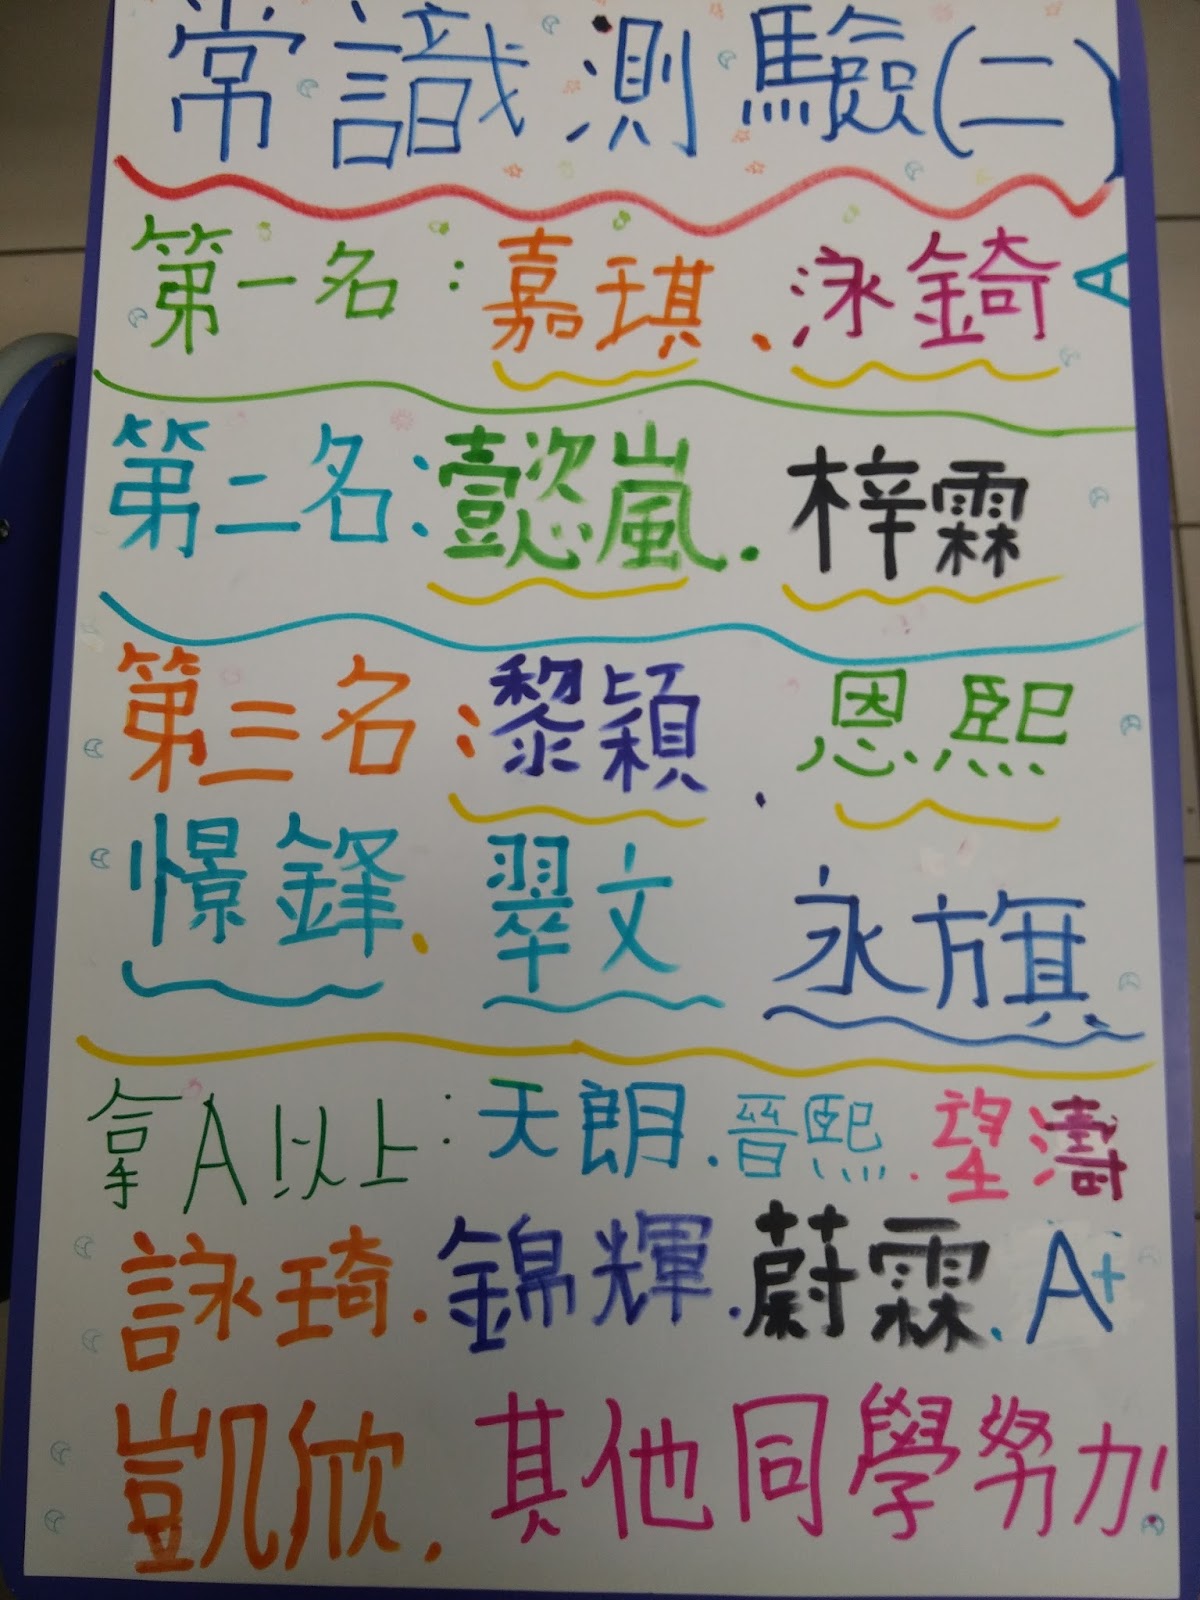 常識測驗(二)
第一名：嘉琪、泳錡 A
第二名：懿嵐．梓霖
第三名：黎穎．恩熙
憬鋒．翠文 永旗
拿A以上：天朗．晉熙．望濤
詠琦．錦輝．蔚霖．A+
凱欣．其他同學努力!